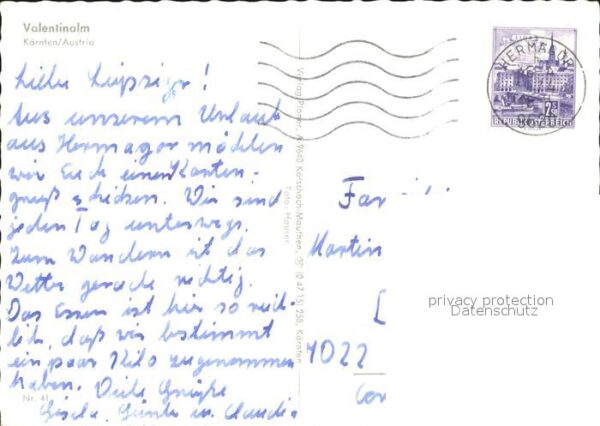 Valentinalm
Kärnten/Austria
Liebe Leipziger!
Aus unserem Urlaub
aus Hermagor möchten
wir Euch einen Karten-
gruß schicken. Wir sind
jeden Tag unterwegs.
Zum Wandern ist das
Wetter gerade richtig.
Das Essen ist hier so reich-
lich, daß wir bestimmt
ein paar Kilo zugenommen
haben. Viele Grüße
Gisela, Günter u. Claudia
Nr. 41
Verlag Ploner, A 9640 Kötschach-Mauthen, ☏ (0 47 15) 258, Kärnten
Foto: Hauser
HERMAGOR
REPUBLIK ÖSTERREICH
Fam
Martin
L
7022
privacy protection
Datenschutz